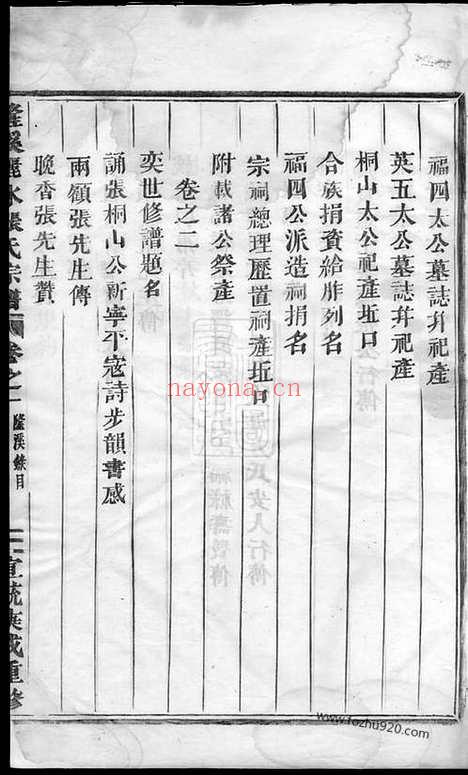 福四太公墓誌幷祀產
英五太公墓誌幷祀產
桐山太公祀產坵口
合族捐資給胙列名
福四公派造祠捐名
宗祠總理歷置祠產坵口
附載諸公祭產
卷之二
奕世修譜題名
誦張桐山公新寧平寇詩步韻書感
兩頠張先生傳
晚香張先生贊
隆溪麗水張氏宗譜 卷之一 隆溪總目 宣統庚戌重修
nayona.cn
www.fozhu920.com